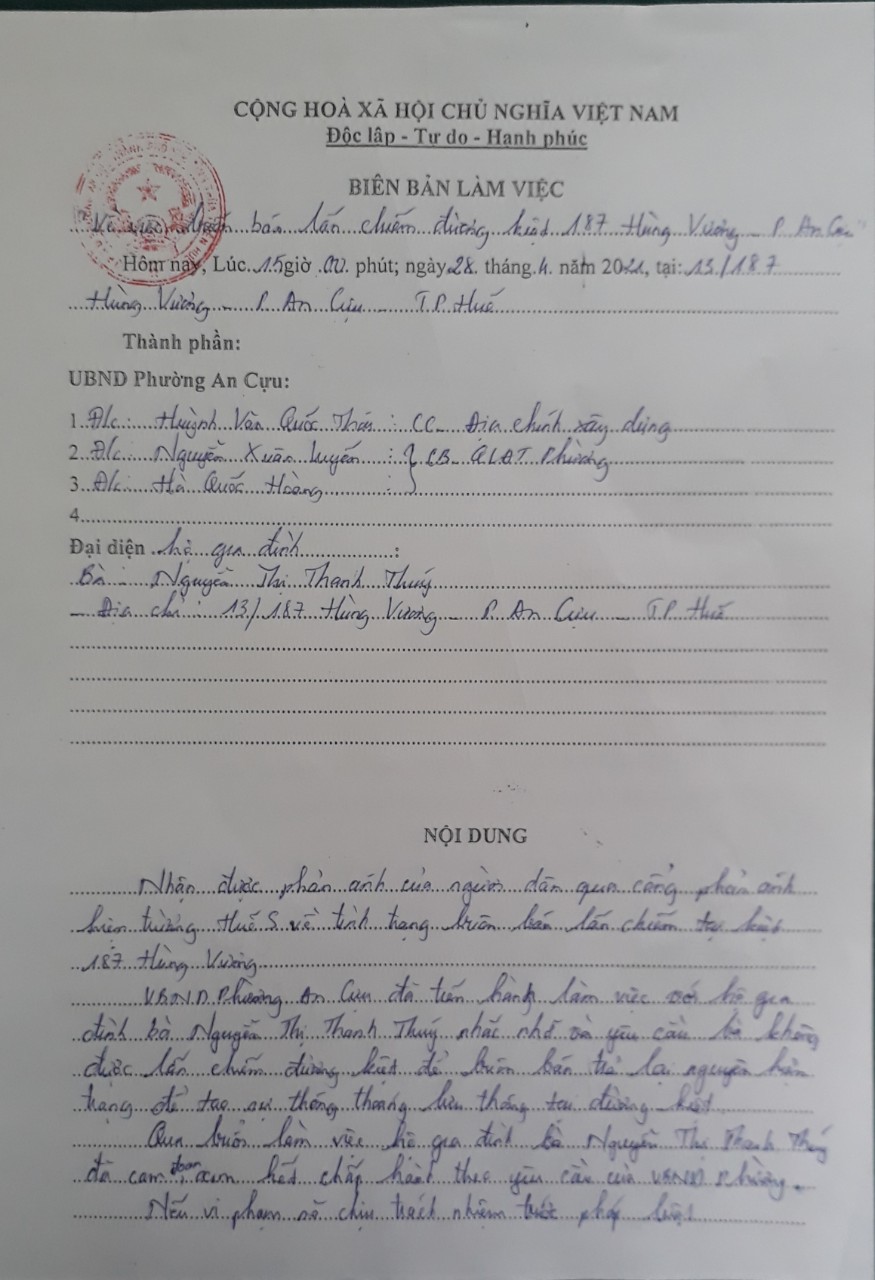 CỘNG HOÀ XÃ HỘI CHỦ NGHĨA VIỆT NAM
Độc lập - Tự do - Hạnh phúc
BIÊN BẢN LÀM VIỆC
Về việc buôn bán lấn chiếm đường kiệt 187 Hùng Vương - P. An Cựu
Hôm nay, Lúc 15 giờ 00 phút; ngày 28 tháng 4 năm 2021, tại: 13/187
Hùng Vương - P. An Cựu - TP Huế
Thành phần:
UBND Phường An Cựu:
1. Đ/c: Huỳnh Văn Quốc Thái : CC - Địa chính xây dựng
2. Đ/c: Nguyễn Xuân Luyến : } CB - QLĐT Phường
3. Đ/c: Hà Quốc Hoàng :
4
Đại diện hộ gia đình :
Bà : Nguyễn Thị Thanh Thuý
- Địa chỉ : 13/187 Hùng Vương - P. An Cựu - TP Huế
NỘI DUNG
Nhận được phản ánh của người dân qua cổng phản ánh
hiện trường Huế S về tình trạng buôn bán lấn chiếm tại kiệt
187 Hùng Vương
UBND Phường An Cựu đã tiến hành làm việc với hộ gia
đình bà Nguyễn Thị Thanh Thuý nhắc nhở và yêu cầu bà không
được lấn chiếm đường kiệt để buôn bán trả lại nguyên hiện
trạng để tạo sự thông thoáng lưu thông tại đường kiệt
Qua buổi làm việc hộ gia đình bà Nguyễn Thị Thanh Thuý
đã cam đoan kết chấp hành theo yêu cầu của UBND Phường.
Nếu vi phạm sẽ chịu trách nhiệm trước pháp luật